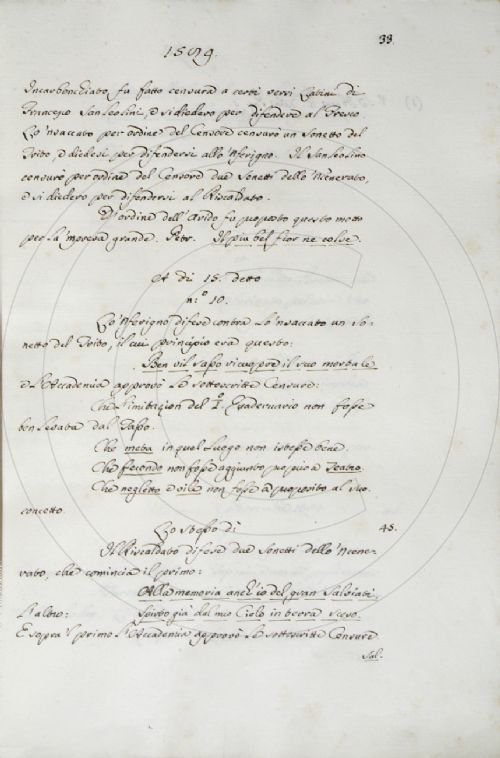 33.
1589.
Incarbonchiato fu fatto censura a certi versi Latini di
Francesco Sanleolini, e si diedero per difendere al Fresco.
Lo 'nsaccato per ordine del Censore censurò un Sonetto del
Trito, e diedesi per difendersi allo 'nferigno. Il Sanleolino
censurò per ordine del Censore due Sonetti dello 'Ncenerato,
e si diedero per difendersi al Riscaldato.
D'ordine dell'Arido fu proposto questo motto
per la 'mpresa grande. Petr. Il più bel fior ne colse.
A di 15. detto
n.o 10.
Lo 'Nferigno difese contra lo 'nsaccato un So-
netto del Trito, il cui principio era questo:
Ben vil sasso
e l'Accademia approvò le sottoscritte Censure:
Che l'imitazion del I.o Quadernario non fosse
ben levata dal Tasso.
Che meta in quel luogo non istesse bene.
Che fecondo non fosse aggiunto proprio a Teatro.
Che negletto e vile non fosse a proposito al suo
concetto.
Lo stesso dì 45.
Il Riscaldato difese due Sonetti dello 'Ncene-
rato, che comincia il primo:
Alla memoria anch'io del gran Salviati
L'altro: Spirto già dal mio Cielo in terra sceso.
E sopra 'l primo l'Accademia approvò le sottoscritte Censure
Sal.